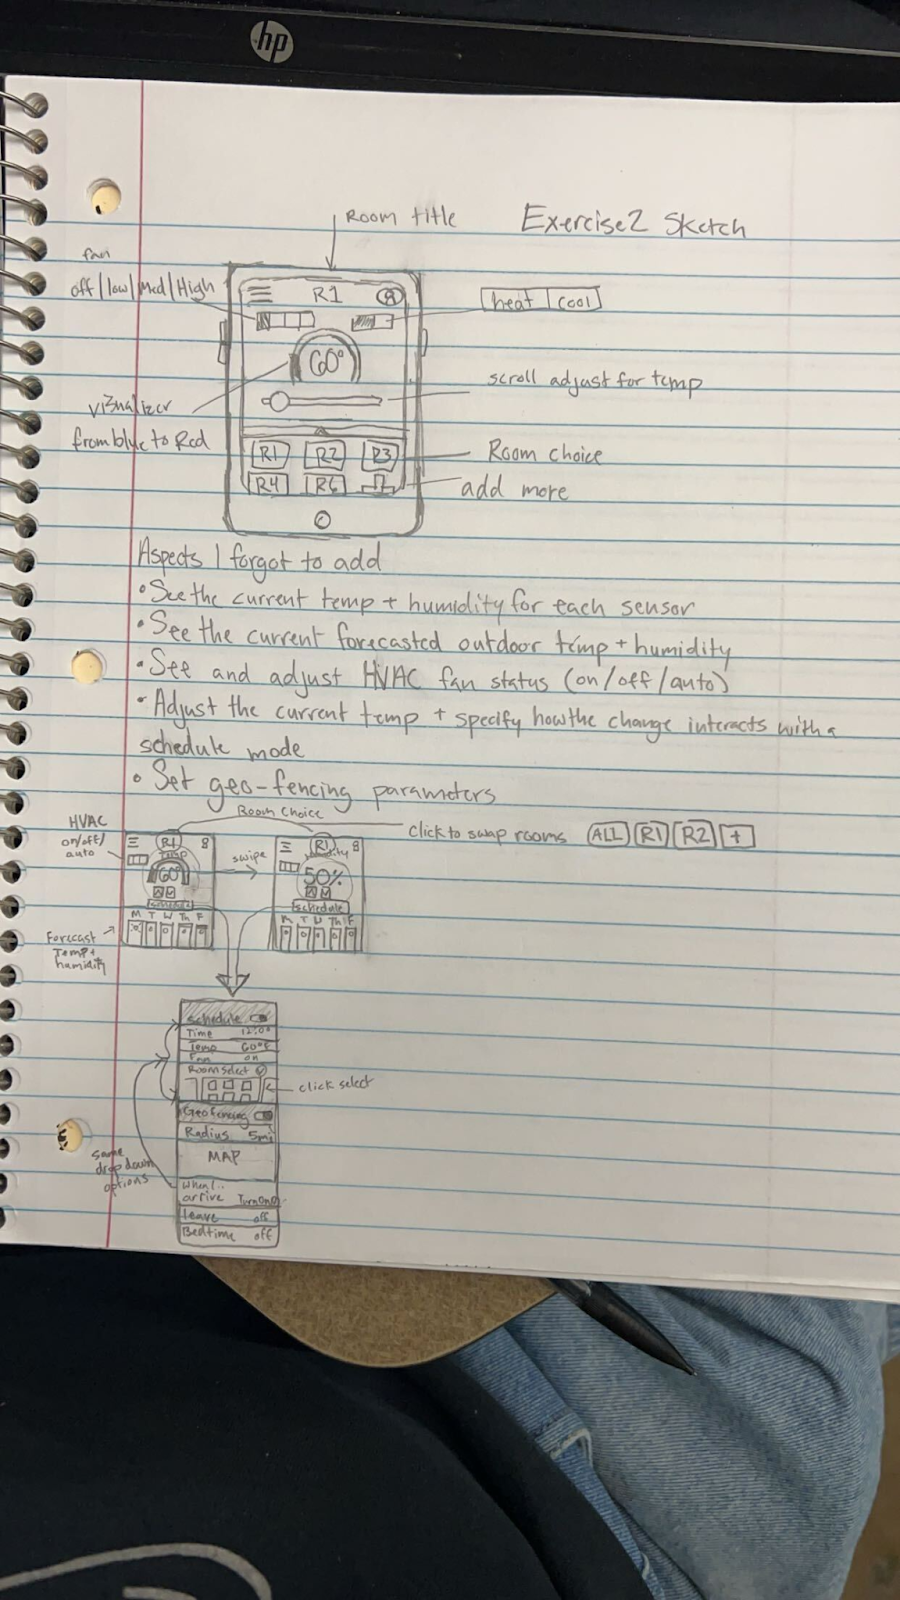 hp
Room title
Exercise2 Sketch
fan
off/low/Med/High
R1
heat | cool
60°
scroll adjust for temp
vizualizer
from blue to Red
R1 R2 R3
Room choice
R4 R6
add more
Aspects I forgot to add
• See the current temp + humidity for each sensor
• See the current forecasted outdoor temp + humidity
• See and adjust HVAC fan status (on/off/auto)
• Adjust the current temp + specify how the change interacts with a
schedule mode
• Set geo-fencing parameters
Room Choice
HVAC
on/off/
auto
R1
Temp
60°
swipe
R1
50%
schedule
Click to swap rooms ALL R1 R2 +
M T W Th F
M T W Th F
Forecast
Temp +
humidity
schedule
Time 12:00
Temp 60°F
Fan on
Room select
click select
Geofencing
Radius 5mi
MAP
same
drop down
options
When I..
arrive Turn On
leave off
Bedtime off